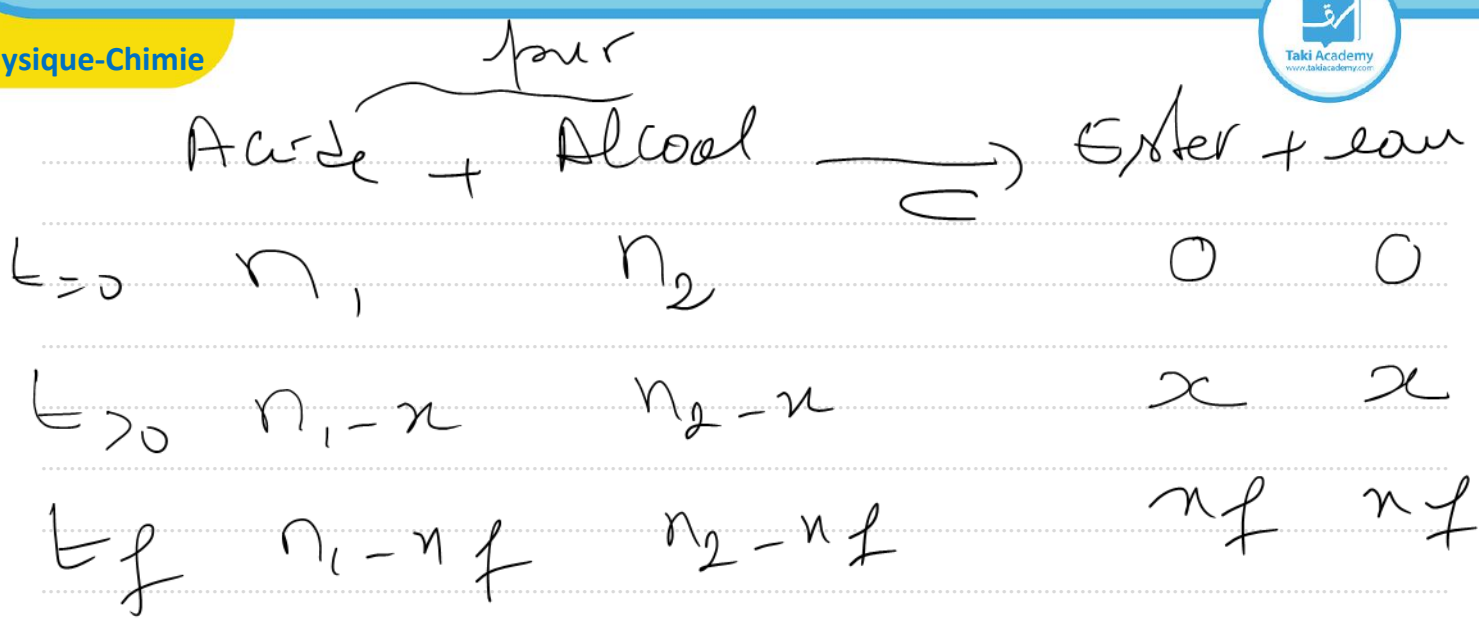 ysique-Chimie
Taki Academy
www.takiacademy.com
pur
Acide + Alcool ⇌ Ester + eau
t=0 n₁ n₂ 0 0
t>0 n₁-x n₂-x x x
tf n₁-xf n₂-xf xf xf